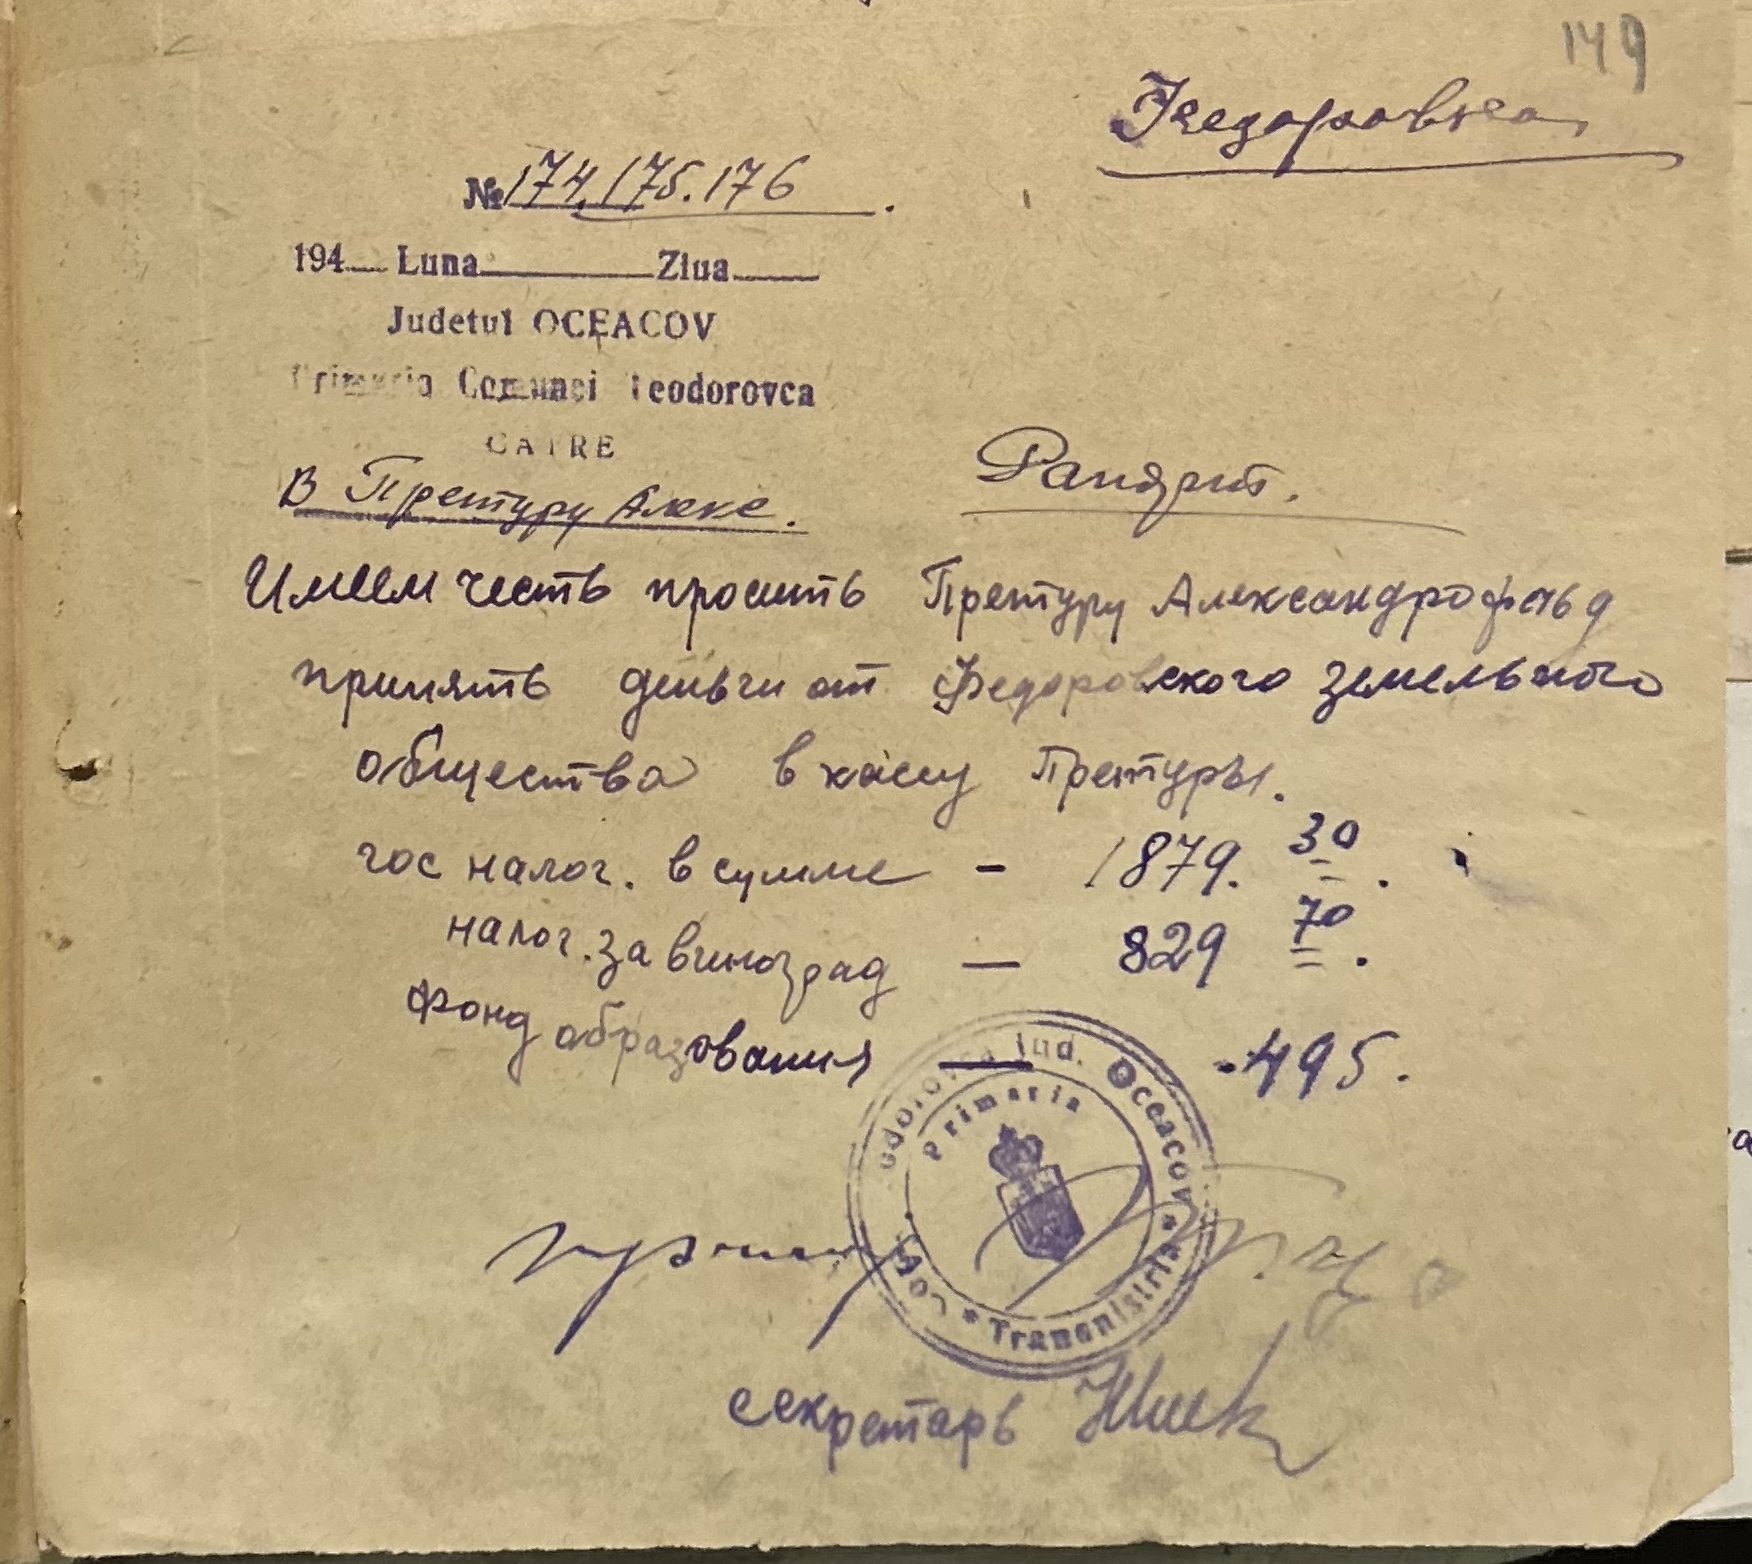 149
Федоровка
№ 174.175.176.
194__ Luna ______ Ziua ____
Judetul OCEACOV
Primaria Comunei Teodorovca
CATRE
В Претуру Алекс.
Рапорт.
Имеем честь просить Претуру Александрофельд
принять деньги от Федоровского земельного
общества в кассу Претуры.
гос налог. в сумме – 1879. 30.
налог. за виноград — 829 70.
Фонд образования — 495.
Jud. Oceacov * Transnistria *
Primaria
секретарь